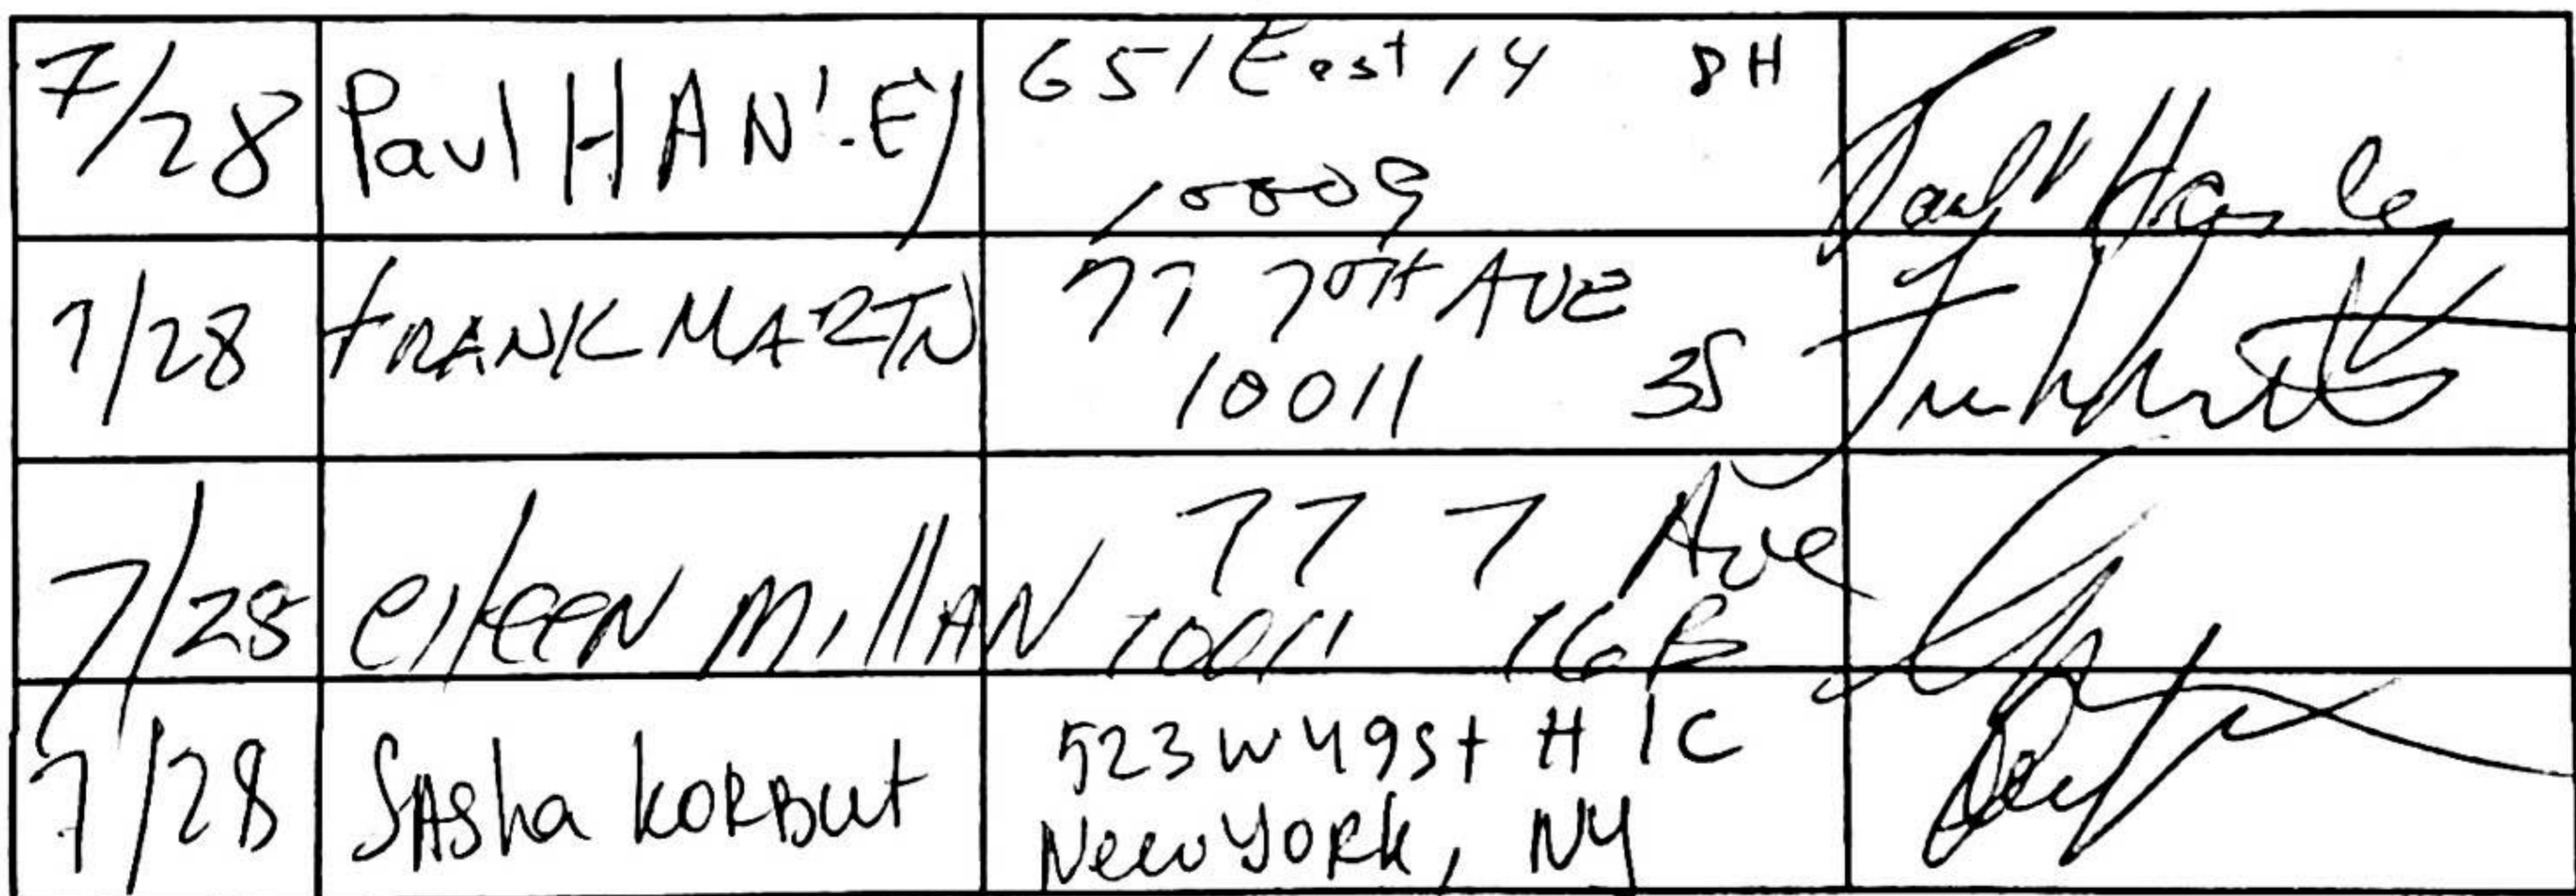 7/28 Paul HANLEY 651 East 14 8H
10009 Paul Hanley
7/28 FRANK MARTIN 77 7TH AVE
10011 35
7/28 EILEEN MillAN 77 7 Ave
10011 16B
7/28 SASha KORBUt 523 W 49 St # 1C
New YORK, NY